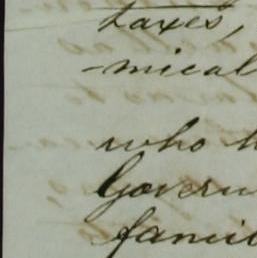 taxes,
-mical
who h
Govern
famil